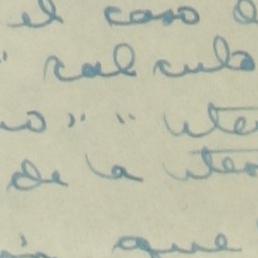 el caso d
calculo
o" " ute
de la ute
que